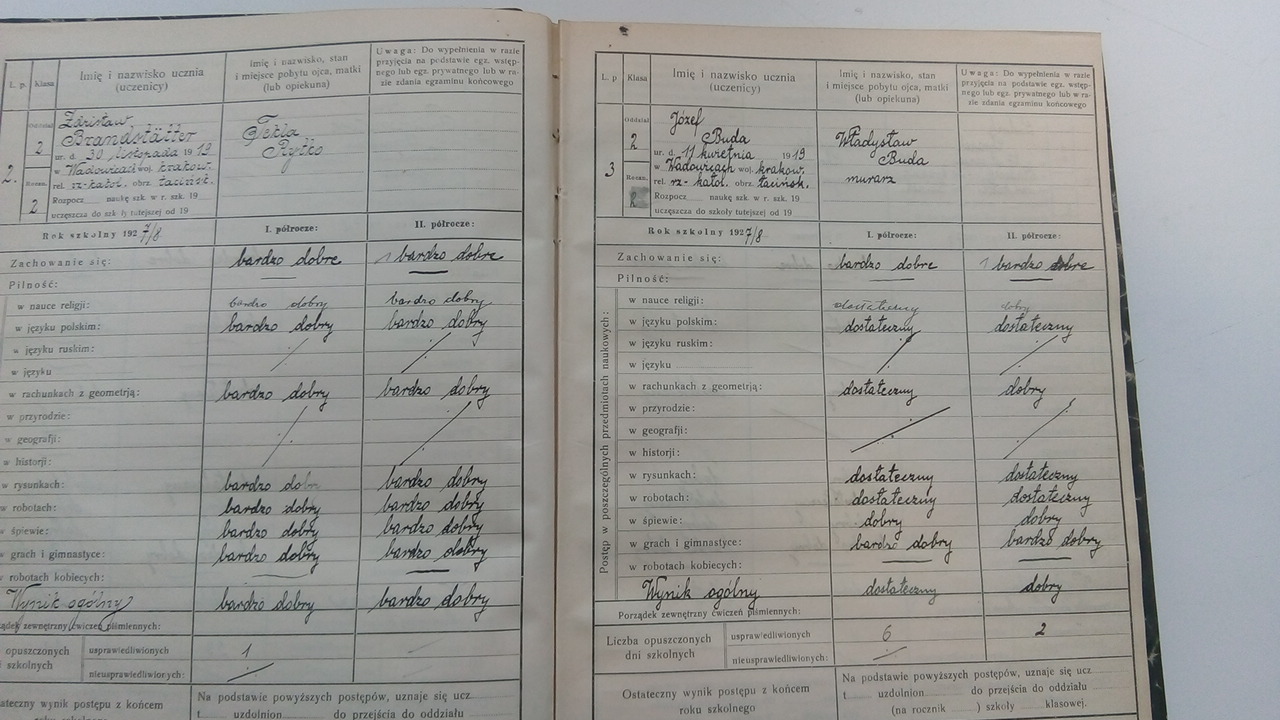 L. p.
Klasa
Imię i nazwisko ucznia
(uczenicy)
Imię i nazwisko, stan
i miejsce pobytu ojca, matki
(lub opiekuna)
Uwaga: Do wypełnienia w razie
przyjęcia na podstawie egz. wstęp-
nego lub egz. prywatnego lub w ra-
zie zdania egzaminu końcowego
2.
Oddział
2
Roczn.
2
Zdzisław
Brandstätter
ur. d. 30 listopada 1919
w Wadowicach woj. krakow.
rel. rz-katol. obrz. łacińsk.
Rozpocz naukę szk. w r. szk. 19
uczęszcza do szkoły tutejszej od 19
Tekla
Rytko
Rok szkolny 1927/8
I. półrocze:
II. półrocze:
Zachowanie się: bardzo dobre 1 bardzo dobre
Pilność:
w nauce religji: bardzo dobry bardzo dobry
w języku polskim: bardzo dobry bardzo dobry
w języku ruskim:
w języku
w rachunkach z geometrją: bardzo dobry bardzo dobry
w przyrodzie:
w geografji:
w historji:
w rysunkach: bardzo dobry bardzo dobry
w robotach: bardzo dobry bardzo dobry
w śpiewie: bardzo dobry bardzo dobry
w grach i gimnastyce: bardzo dobry bardzo dobry
w robotach kobiecych:
Wynik ogólny bardzo dobry bardzo dobry
ządek zewnętrzny ćwiczeń piśmiennych:
opuszczonych
szkolnych
usprawiedliwionych 1
nieusprawiedliwionych:
ateczny wynik postępu z końcem
roku szkolnego
Na podstawie powyższych postępów, uznaje się ucz
t uzdolnion do przejścia do oddziału
L. p
Klasa
Imię i nazwisko ucznia
(uczenicy)
Imię i nazwisko, stan
i miejsce pobytu ojca, matki
(lub opiekuna)
Uwaga: Do wypełnienia w razie
przyjęcia na podstawie egz. wstęp-
nego lub egz. prywatnego lub w ra-
zie zdania egzaminu końcowego
3
Oddział
2
Roczn.
2
Józef
Buda
ur. d. 11 kwietnia 1919
w Wadowicach woj. krakow.
rel. rz-katol. obrz. łacińsk.
Rozpocz naukę szk. w r. szk. 19
uczęszcza do szkoły tutejszej od 19
Władysław
Buda
murarz
Rok szkolny 1927/8
I. półrocze:
II. półrocze:
Zachowanie się: bardzo dobre 1 bardzo dobre
Pilność:
Postęp w poszczególnych przedmiotach naukowych:
w nauce religji: dostateczny dobry
w języku polskim: dostateczny dostateczny
w języku ruskim:
w języku
w rachunkach z geometrją: dostateczny dobry
w przyrodzie:
w geografji:
w historji:
w rysunkach: dostateczny dostateczny
w robotach: dostateczny dostateczny
w śpiewie: dobry dobry
w grach i gimnastyce: bardzo dobry bardzo dobry
w robotach kobiecych:
Wynik ogólny dostateczny dobry
Porządek zewnętrzny ćwiczeń piśmiennych:
Liczba opuszczonych
dni szkolnych
usprawiedliwionych 6 2
nieusprawiedliwionych:
Ostateczny wynik postępu z końcem
roku szkolnego
Na podstawie powyższych postępów, uznaje się ucz
t uzdolnion do przejścia do oddziału
(na rocznik ) szkoły klasowej.